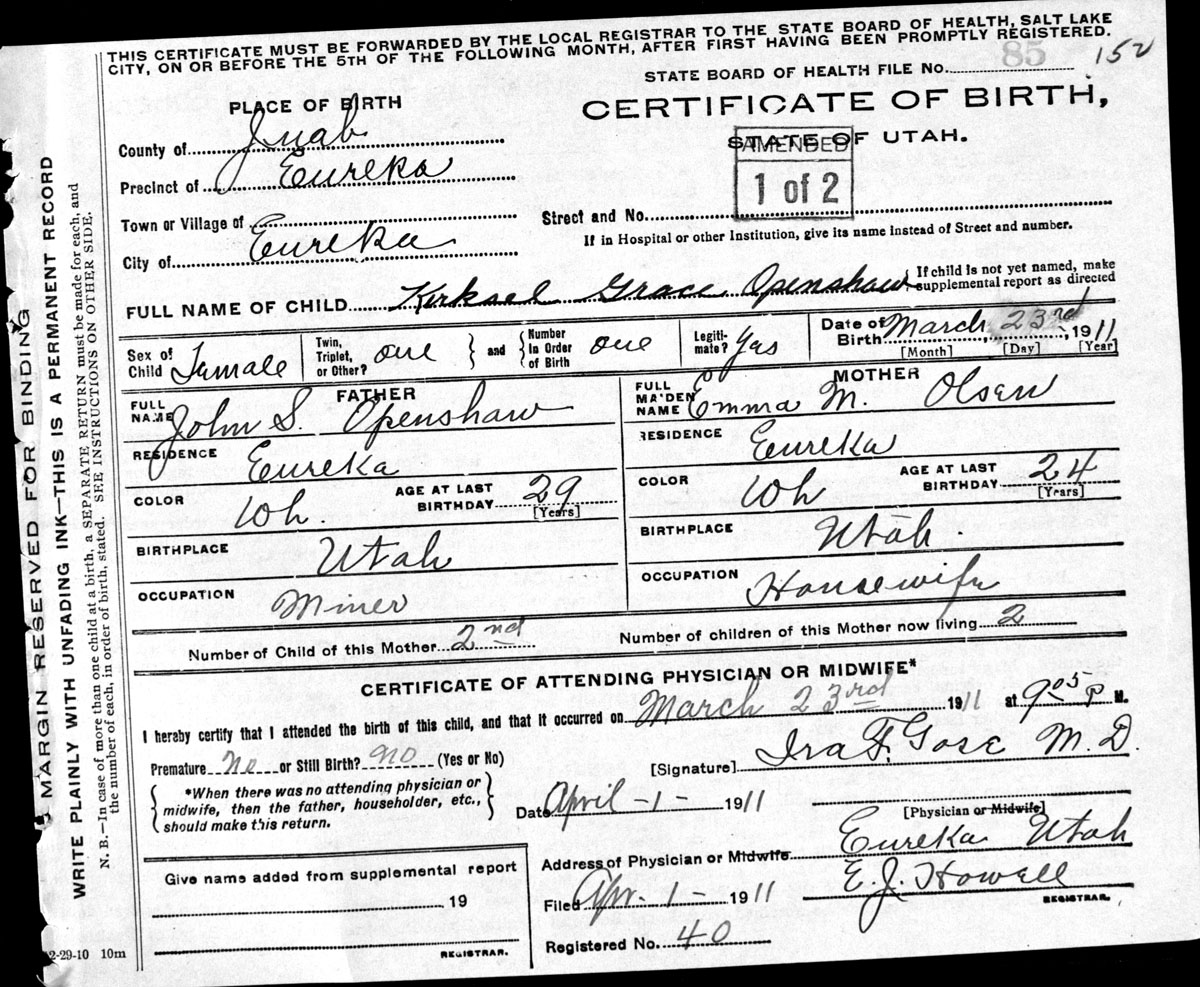 THIS CERTIFICATE MUST BE FORWARDED BY THE LOCAL REGISTRAR TO THE STATE BOARD OF HEALTH, SALT LAKE
CITY, ON OR BEFORE THE 5TH OF THE FOLLOWING MONTH, AFTER FIRST HAVING BEEN PROMPTLY REGISTERED.
STATE BOARD OF HEALTH FILE No. 85 152
PLACE OF BIRTH
CERTIFICATE OF BIRTH,
STATE OF UTAH.
AMENDED
1 of 2
County of Juab
Precinct of Eureka
Town or Village of
City of Eureka
Street and No.
If in Hospital or other Institution, give its name instead of Street and number.
FULL NAME OF CHILD Kirksel Grace Openshaw
If child is not yet named, make
supplemental report as directed
Sex of Child Female
Twin, Triplet, or Other? one
and
Number In Order of Birth one
Legitimate? Yes
Date of Birth March 23rd, 1911
[Month] [Day] [Year]
FATHER
FULL NAME John S. Openshaw
RESIDENCE Eureka
COLOR Wh.
AGE AT LAST BIRTHDAY 29
[Years]
BIRTHPLACE Utah
OCCUPATION Miner
MOTHER
FULL MAIDEN NAME Emma M. Olsen
RESIDENCE Eureka
COLOR Wh
AGE AT LAST BIRTHDAY 24
[Years]
BIRTHPLACE Utah.
OCCUPATION Housewife
Number of Child of this Mother 2nd
Number of children of this Mother now living 2
CERTIFICATE OF ATTENDING PHYSICIAN OR MIDWIFE*
I hereby certify that I attended the birth of this child, and that it occurred on March 23rd 1911 at 9 05 P M.
Premature No or Still Birth? no (Yes or No)
[Signature] Ira F. Gose M.D.
*When there was no attending physician or
midwife, then the father, householder, etc.,
should make this return.
Date April -1- 1911
[Physician or Midwife]
Address of Physician or Midwife Eureka Utah
Give name added from supplemental report
19
REGISTRAR.
Filed Apr. -1- 1911
E. J. Howell
REGISTRAR.
Registered No. 40
2-29-10 10m
MARGIN RESERVED FOR BINDING
WRITE PLAINLY WITH UNFADING INK—THIS IS A PERMANENT RECORD
N. B.—In case of more than one child at a birth, a SEPARATE RETURN must be made for each, and
the number of each, in order of birth, stated. SEE INSTRUCTIONS ON OTHER SIDE.